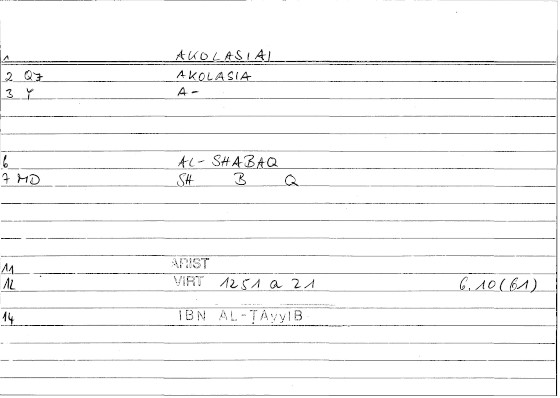 1 AKOLASIAI
2 Q7 AKOLASIA
3 Y A-
6 AL-SHABAQ
7 MD SH B Q
11 ARIST
12 VIRT 1251 a 21 6.10(61)
14 IBN AL-ṬAyyIB